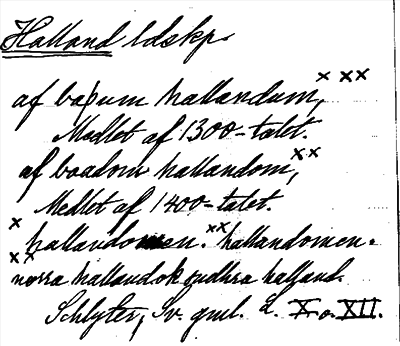 Halland ldskp.
af baþum hallandum, × ××
Medlet af 1300-talet.
af baadom hallandom, ××
Medlet af 1400-talet.
× hallandomen. ×× hallandomen.
×× norra halland ok sudhra halland.
Schlyter, Sv. gml. L. X o. XII.